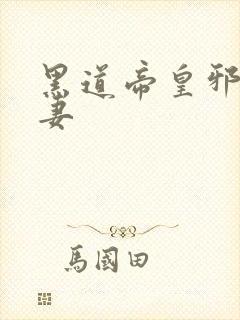 黑道帝皇邪
妻
馬國田